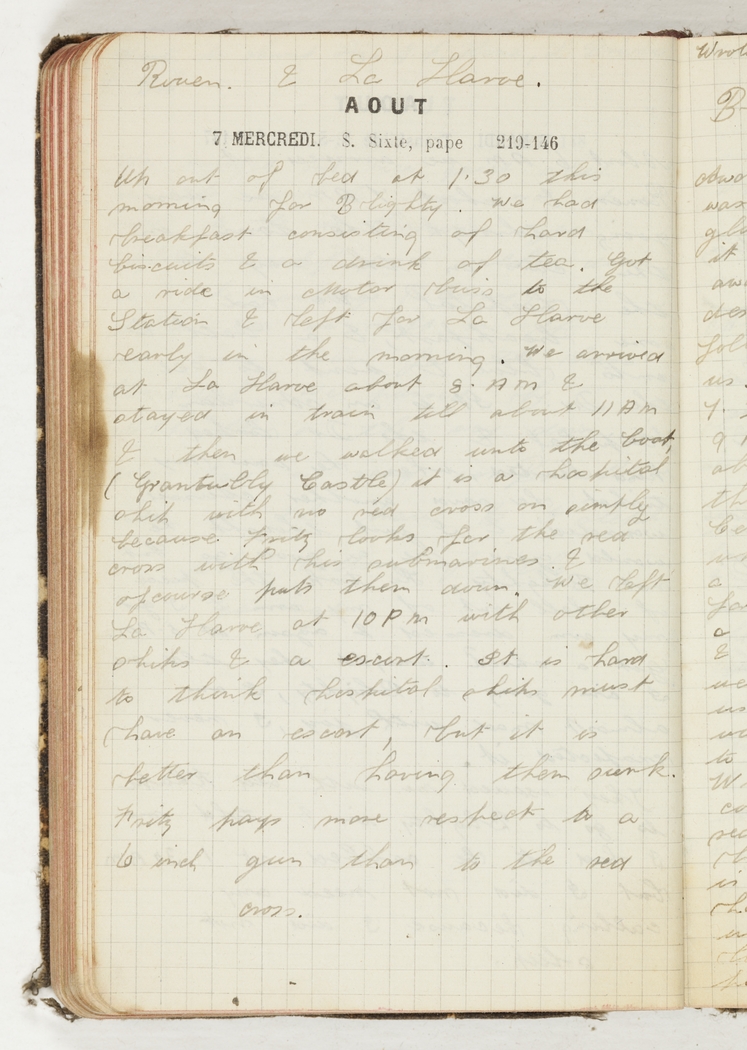 Rouen. & La Harve.
AOUT
7 MERCREDI. S. Sixte, pape 219-146
Up out of bed at 1.30 this
morning for Blighty. We had
breakfast consisting of hard
biscuits & a drink of tea. Got
a ride in Motor buss to the
Station & left for La Harve
early in the morning. We arrived
at La Harve about 8. AM &
stayed in train till about 11 AM
& then we walked unto the boat,
(Grantubly Castle) it is a hospital
ship with no red cross on simply
because Fritz looks for the red
cross with his submarines &
ofcourse puts them down. We left
La Harve at 10 PM with other
ships & a escort. It is hard
to think hospital ships must
have an escort, but it is
better than having them sunk.
Fritz pays more respect to a
6 inch gun than to the red
cross.
Wrote
B
us.
to
is